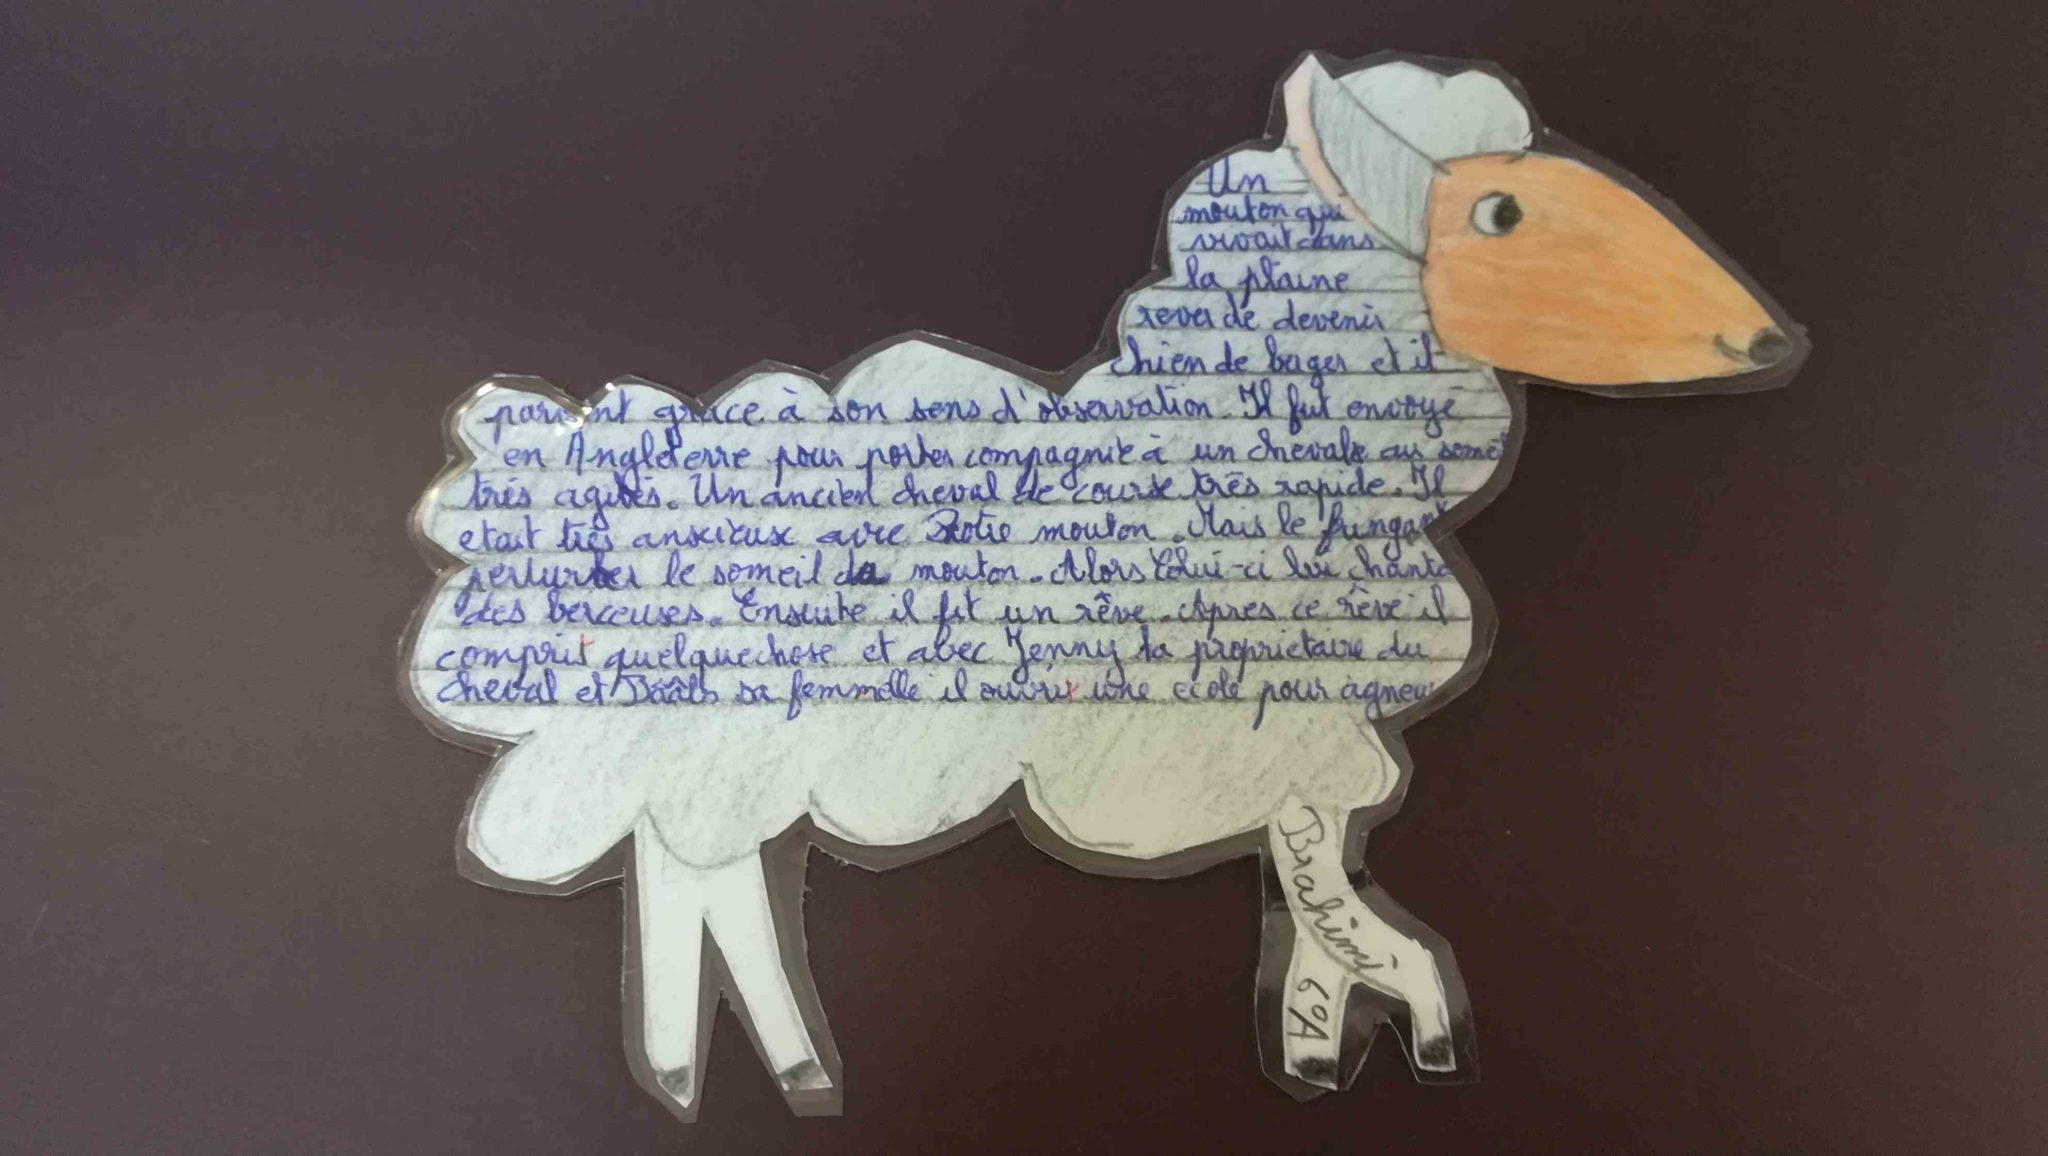 Un
mouton qui
vivait dans
la plaine
rever de devenir
chien de berger et il
parvint grace à son sens d'observation. Il fut envoyé
en Angleterre pour porter compagnie à un chevals au somei
très agités. Un ancien cheval de course très rapide. Il
etait très anxieux avec Notre mouton. Mais le fringant
perturber le someil du mouton. Alors Celui-ci lui chanta
des berceuses. Ensuite il fit un rêve. Apres ce rêve il
comprit quelquechose et avec Jenny la proprietaire du
cheval et sa femmelle il ouvrit une ecole pour agneau
Brahimi
6°A